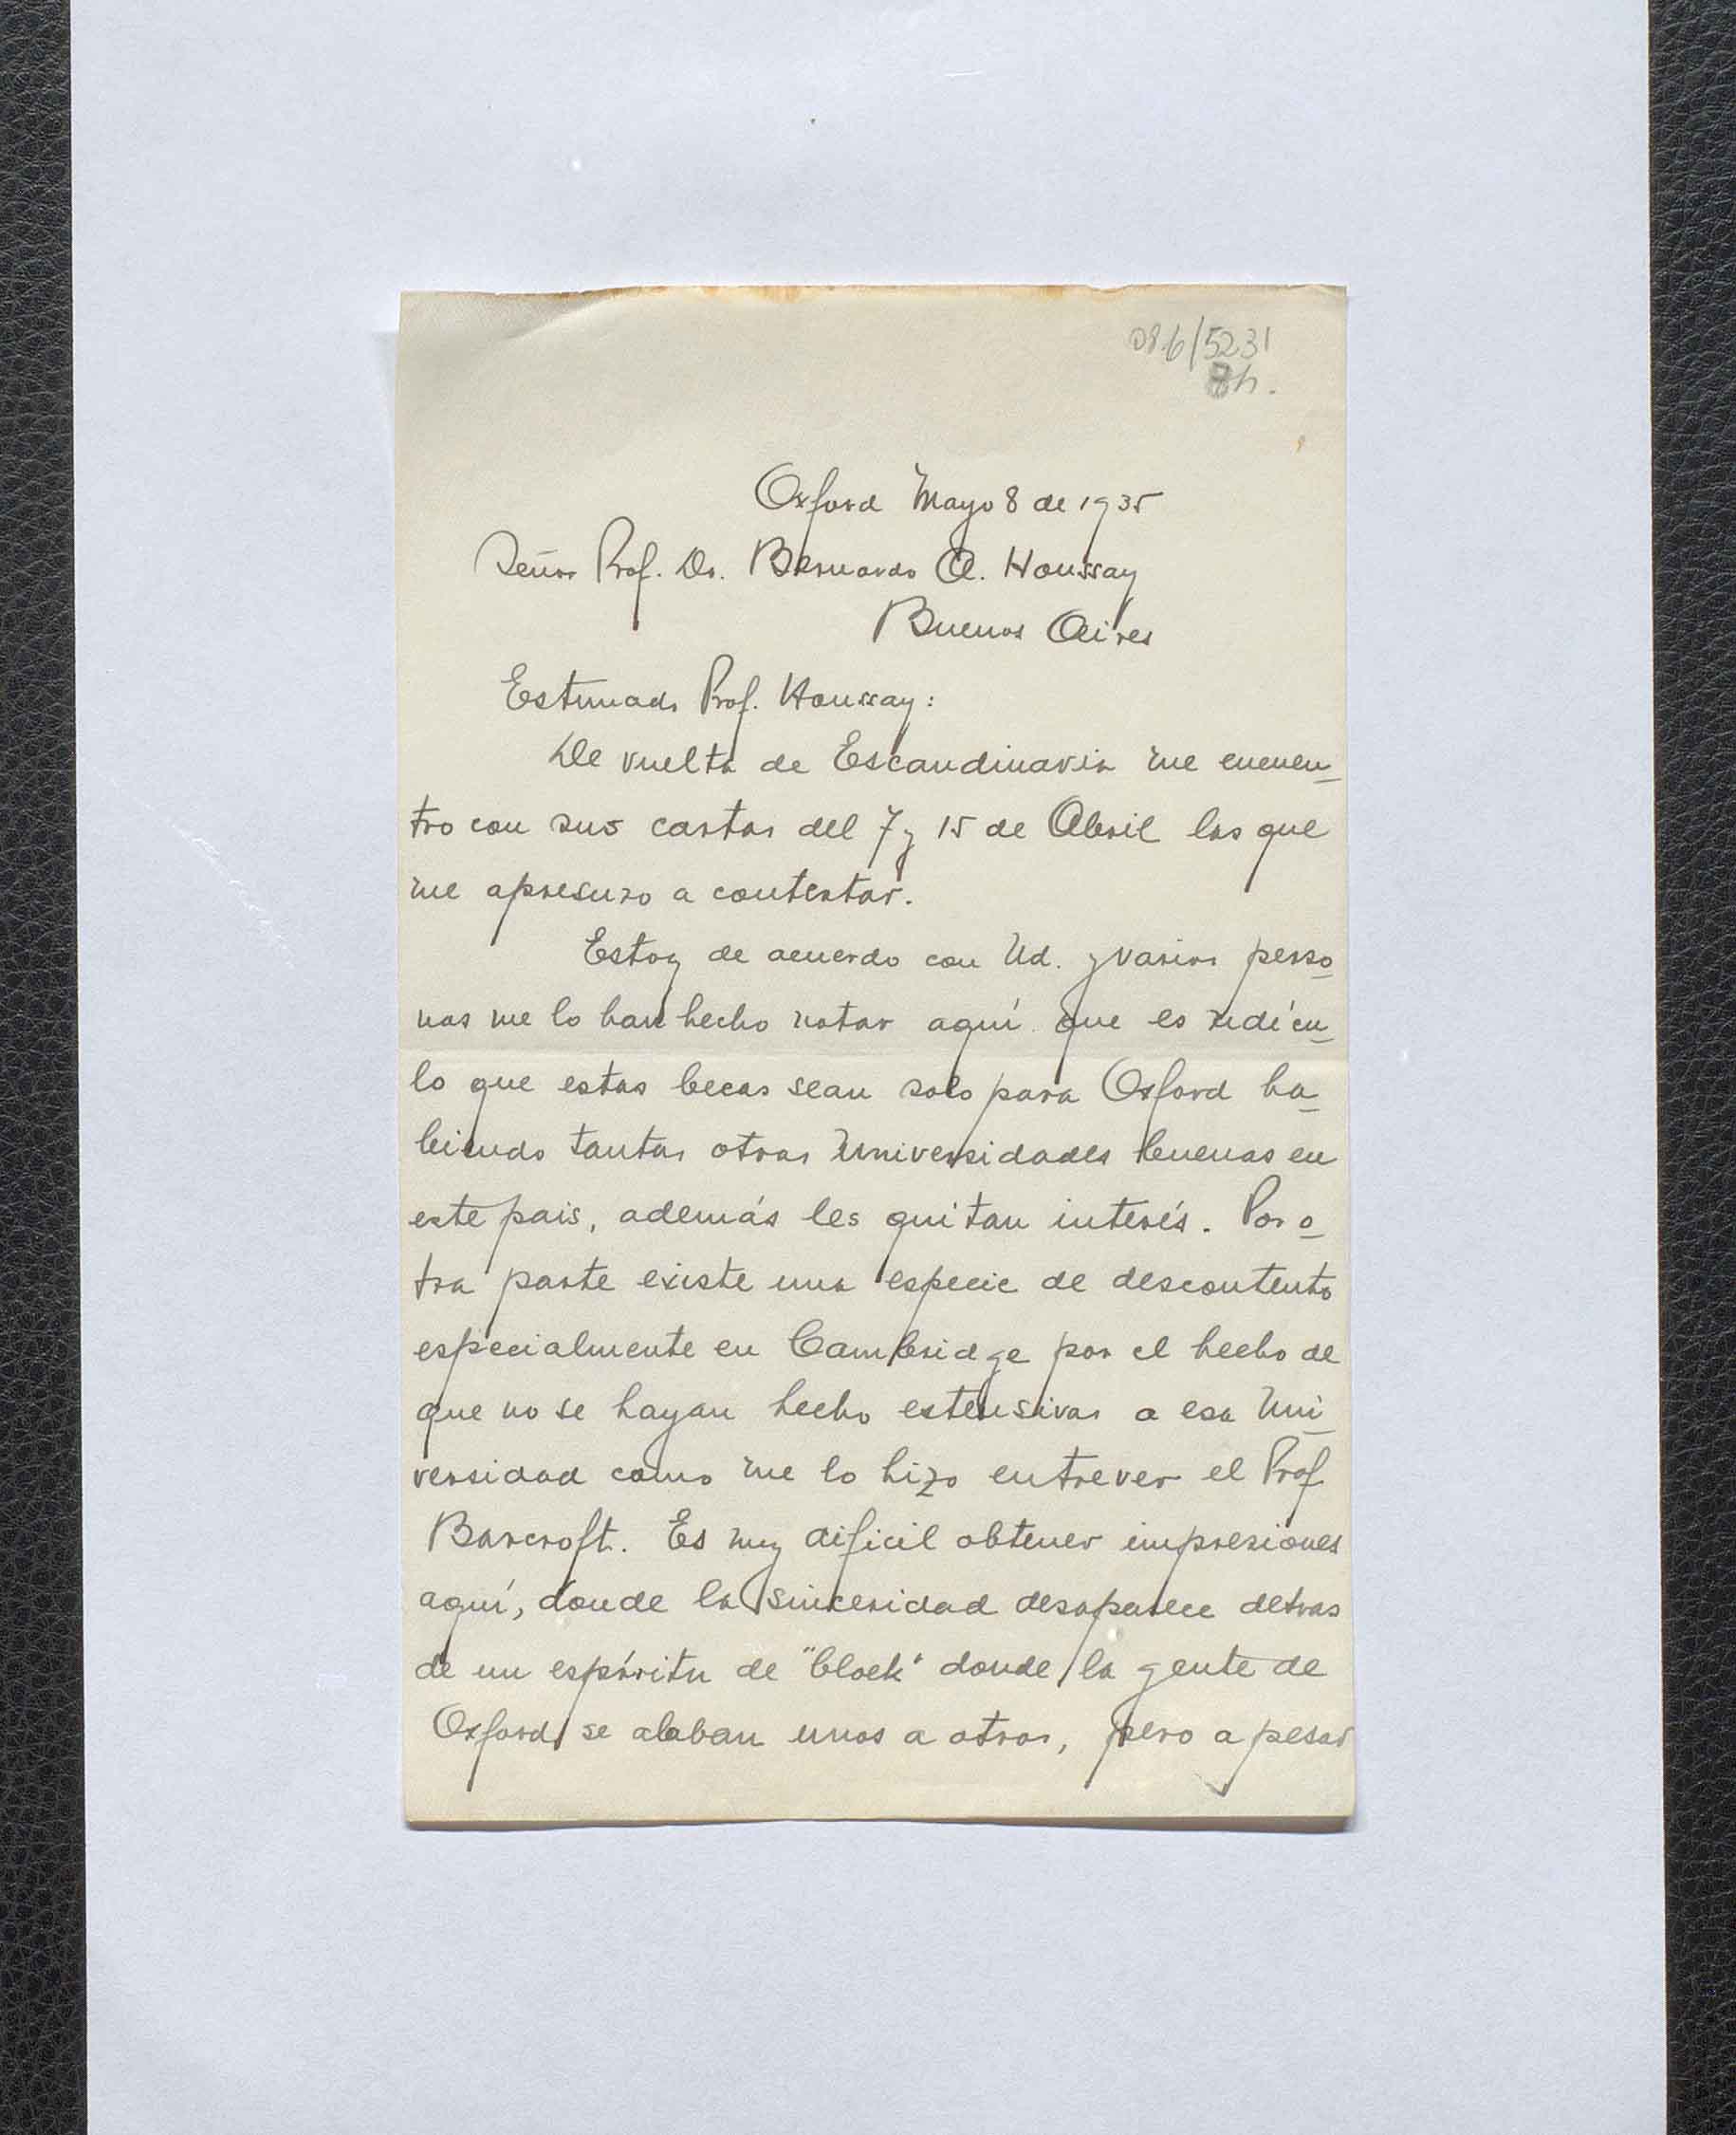 086/5231
8h.
Oxford Mayo 8 de 1935
Señor Prof. Dr. Bernardo A. Houssay
Buenos Aires
Estimado Prof. Houssay:
De vuelta de Escandinavia me encuen-
tro con sus cartas del 7 y 15 de Abril las que
me apresuro a contestar.
Estoy de acuerdo con Ud. y varias perso-
nas me lo han hecho notar aquí que es ridícu-
lo que estas becas sean solo para Oxford ha-
biendo tantas otras Universidades buenas en
este pais, además les quitan interés. Por o-
tra parte existe una especie de descontento
especialmente en Cambridge por el hecho de
que no se hayan hecho estensivas a esa Uni-
versidad como me lo hizo entrever el Prof
Barcroft. Es muy dificil obtener impresiones
aquí, donde la sinceridad desaparece detras
de un espíritu de "block" donde la gente de
Oxford se alaban unos a otros, pero a pesar